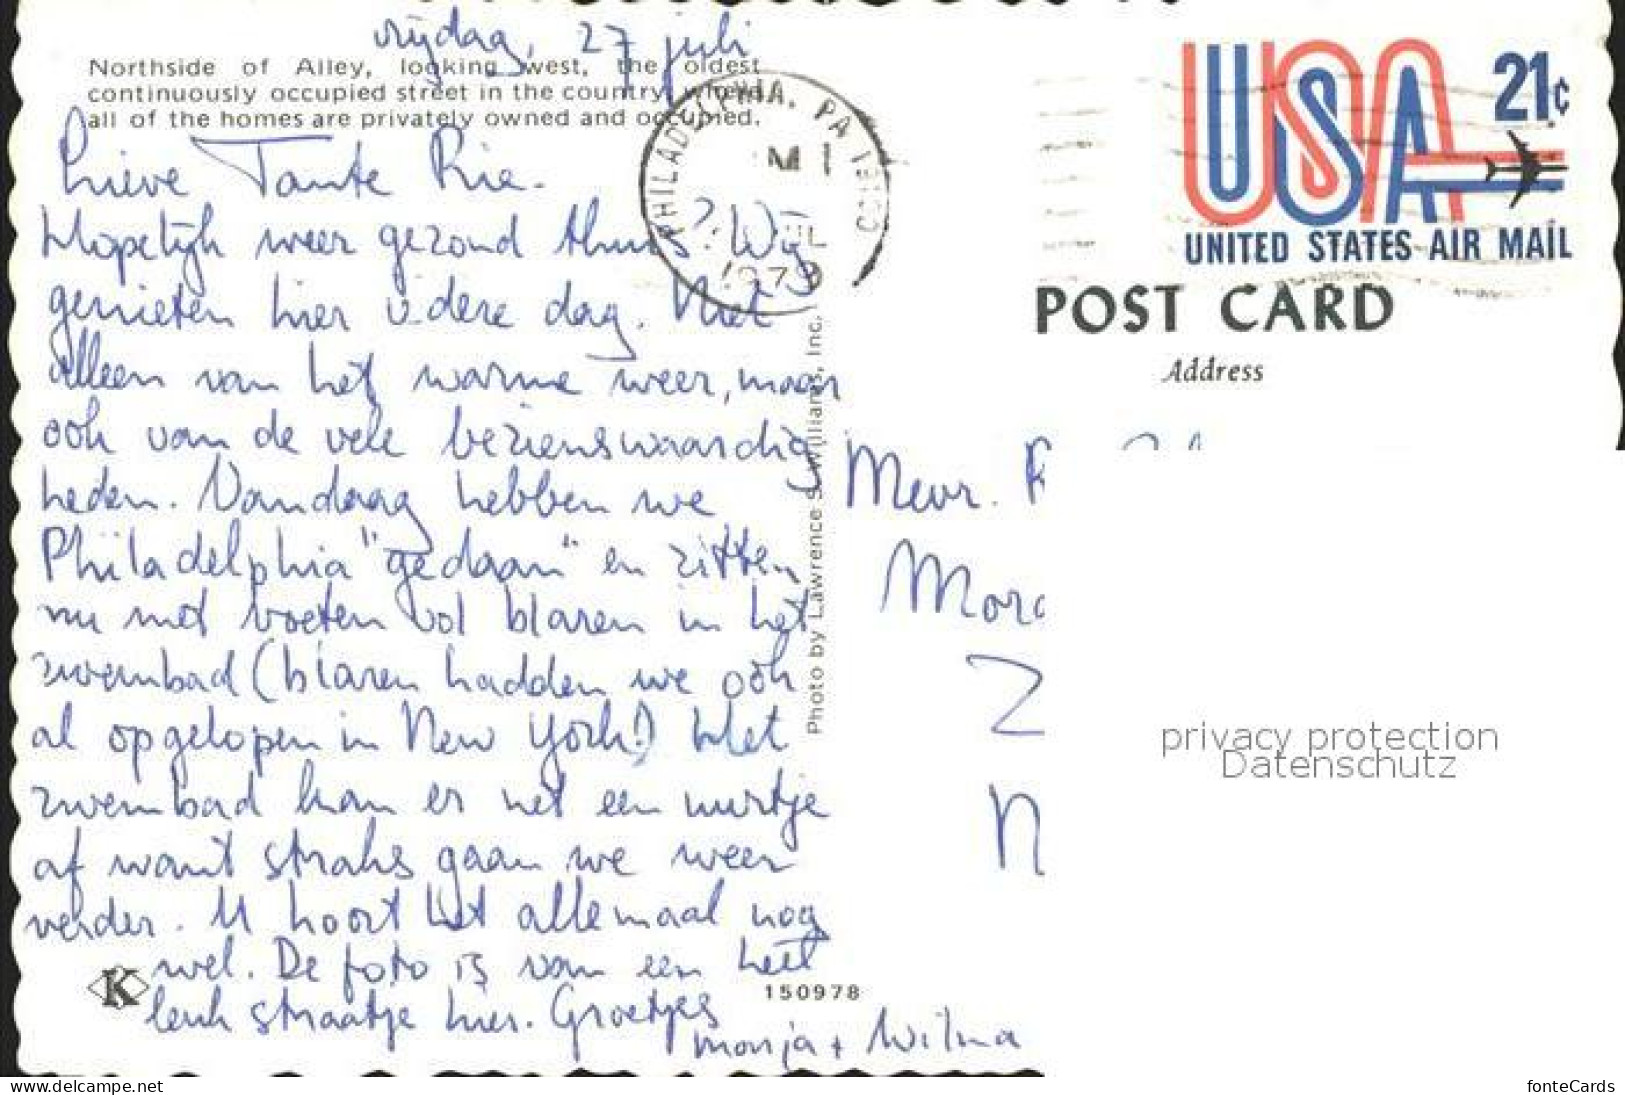 vrijdag, 27 juli
Northside of Alley, looking west, the oldest
continuously occupied street in the country, where
all of the homes are privately owned and occupied.
Lieve Tante Rie.
Hopelijk weer gezond thuis? Wij
genieten hier iedere dag. Niet
alleen van het warme weer, maar
ook van de vele bezienswaardig
heden. Vandaag hebben we
Philadelphia "gedaan" en zitten
nu met voeten vol blaren in het
zwembad (blaren hadden we ook
al opgelopen in New York!) Het
zwembad kan er net een uurtje
af want straks gaan we weer
verder. U hoort het allemaal nog
wel. De foto is van een heel
leuk straatje hier. Groetjes
Monja + Wilma
K
150978
Photo by Lawrence S. Williams, Inc.
PHILADELPHIA, PA
1979
USA 21c
UNITED STATES AIR MAIL
POST CARD
Address
Mevr.
Z
N
privacy protection
Datenschutz
www.delcampe.net
fonteCards